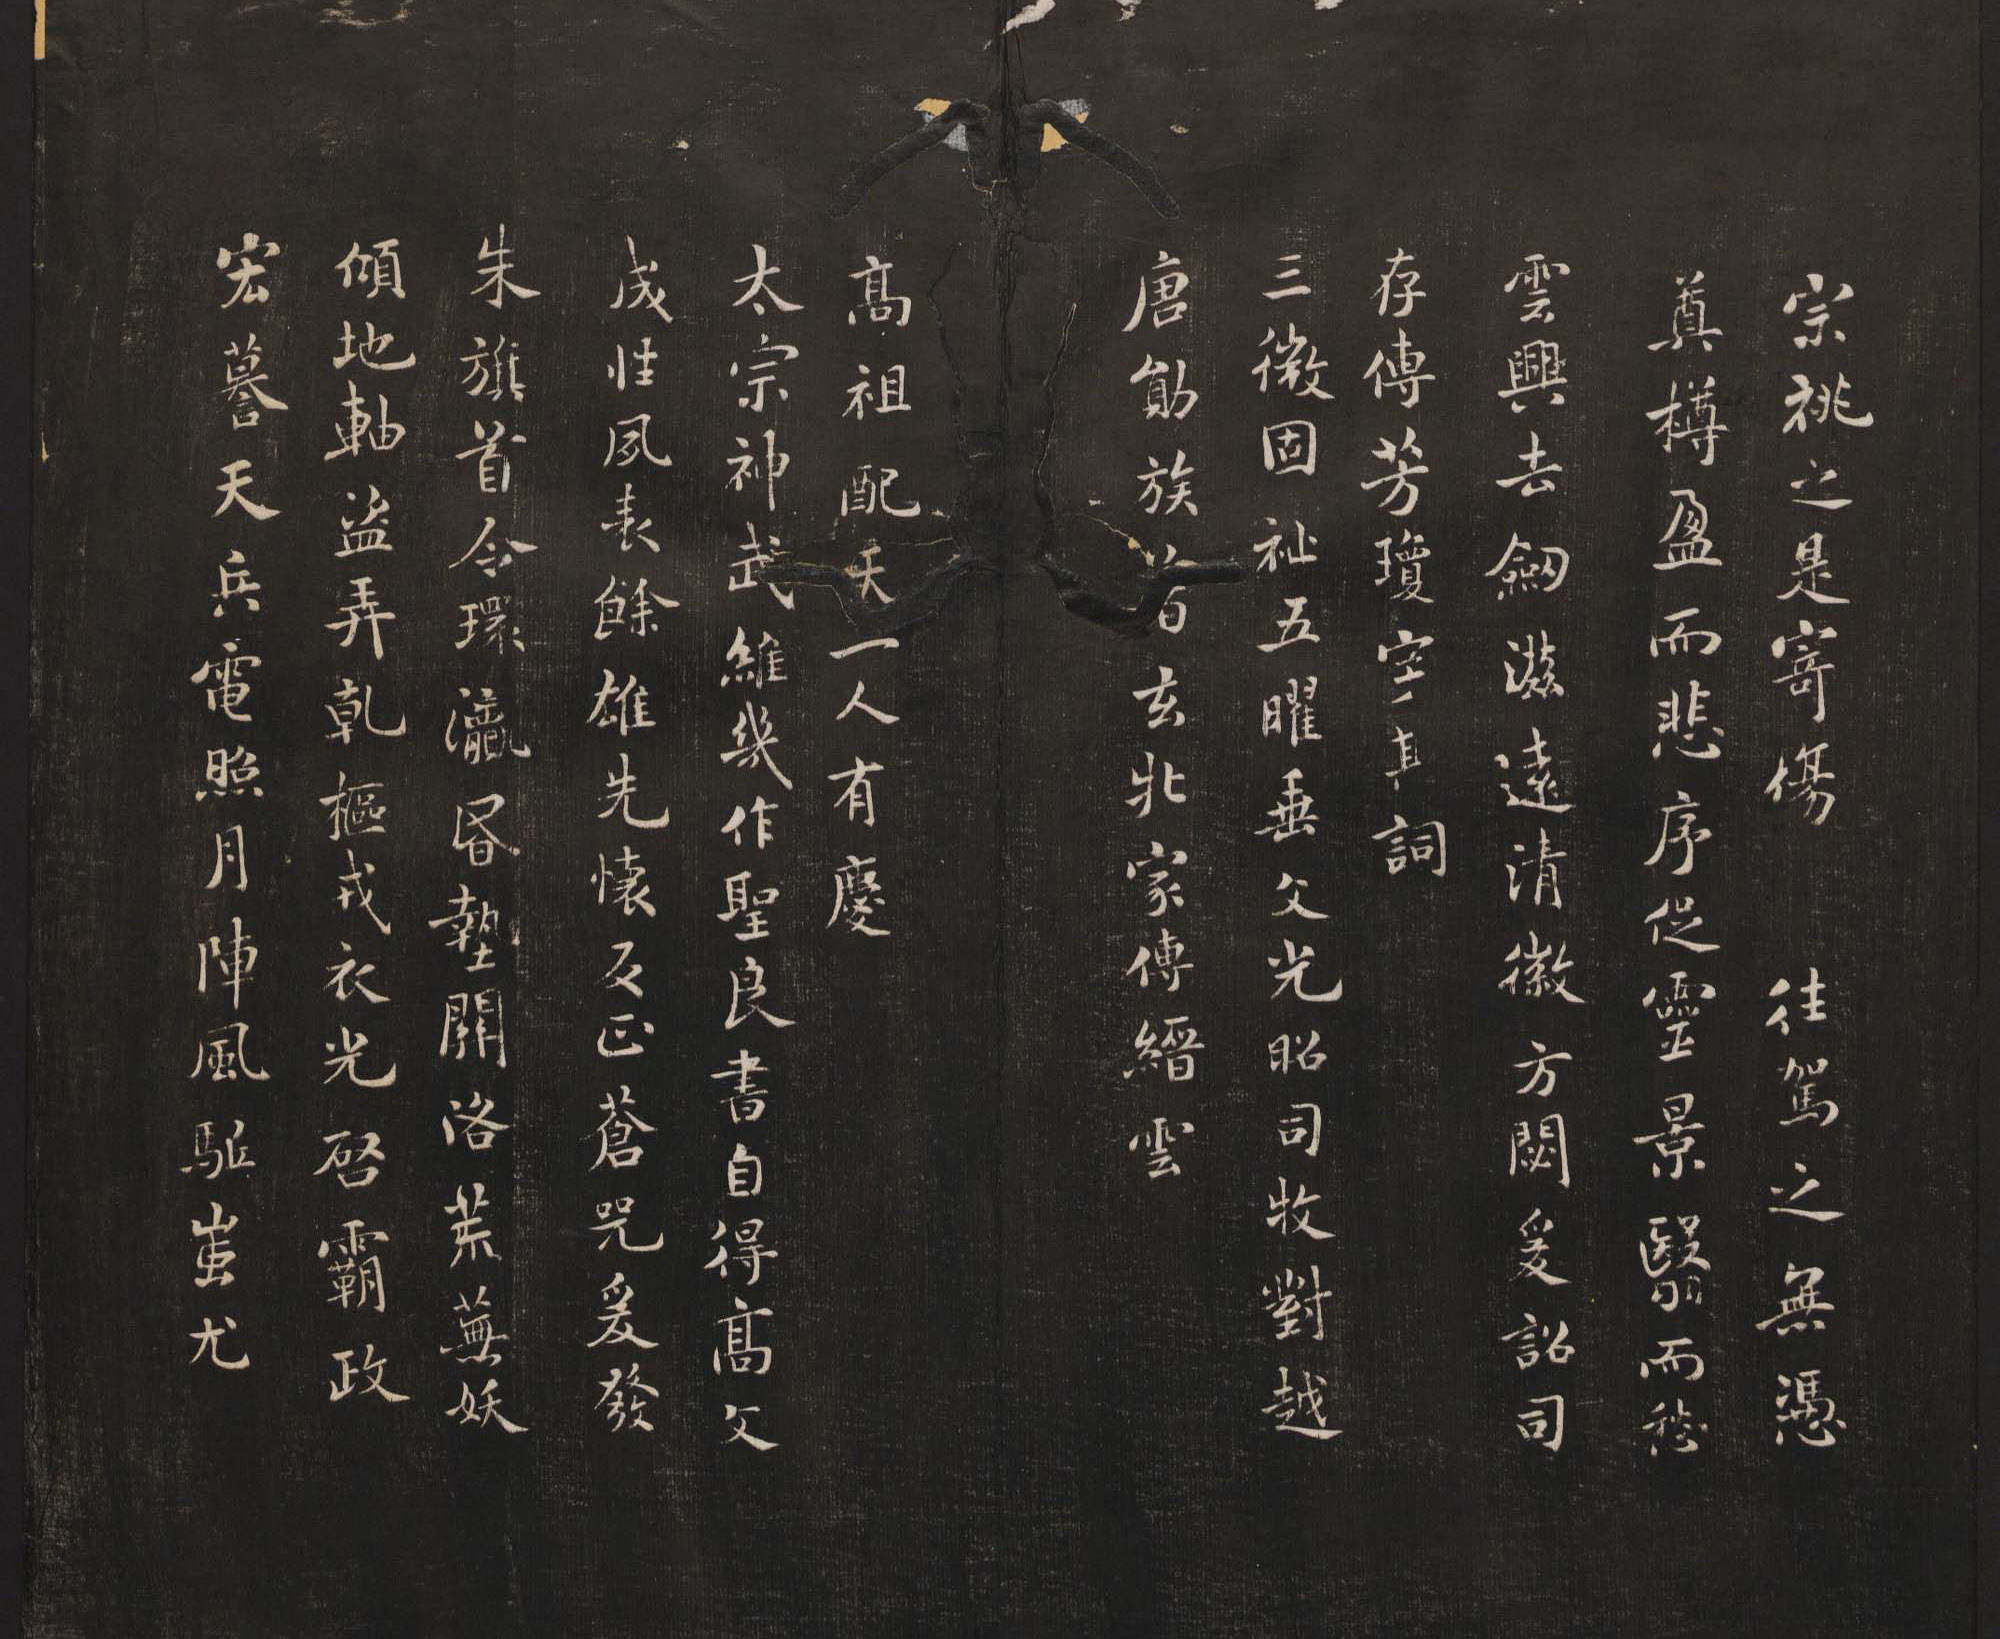 宗祧之是寄傷 往駕之無憑
奠樽盈而悲序促靈景翳而愁
雲興去劒滋遠清徽方閟爰詔司
存傳芳瓊室其詞
三微固祉五曜垂文光昭司牧對越
唐勛族著玄北家傳縉雲
高祖配天一人有慶
太宗神武維幾作聖良書自得高文
成性夙表餘雄先懷反正蒼兕爰發
朱旗首令環瀛昏墊關洛荒蕪妖
傾地軸盜弄乾樞戎衣光啓霸政
宏謩天兵電照月陣風駈蚩尤